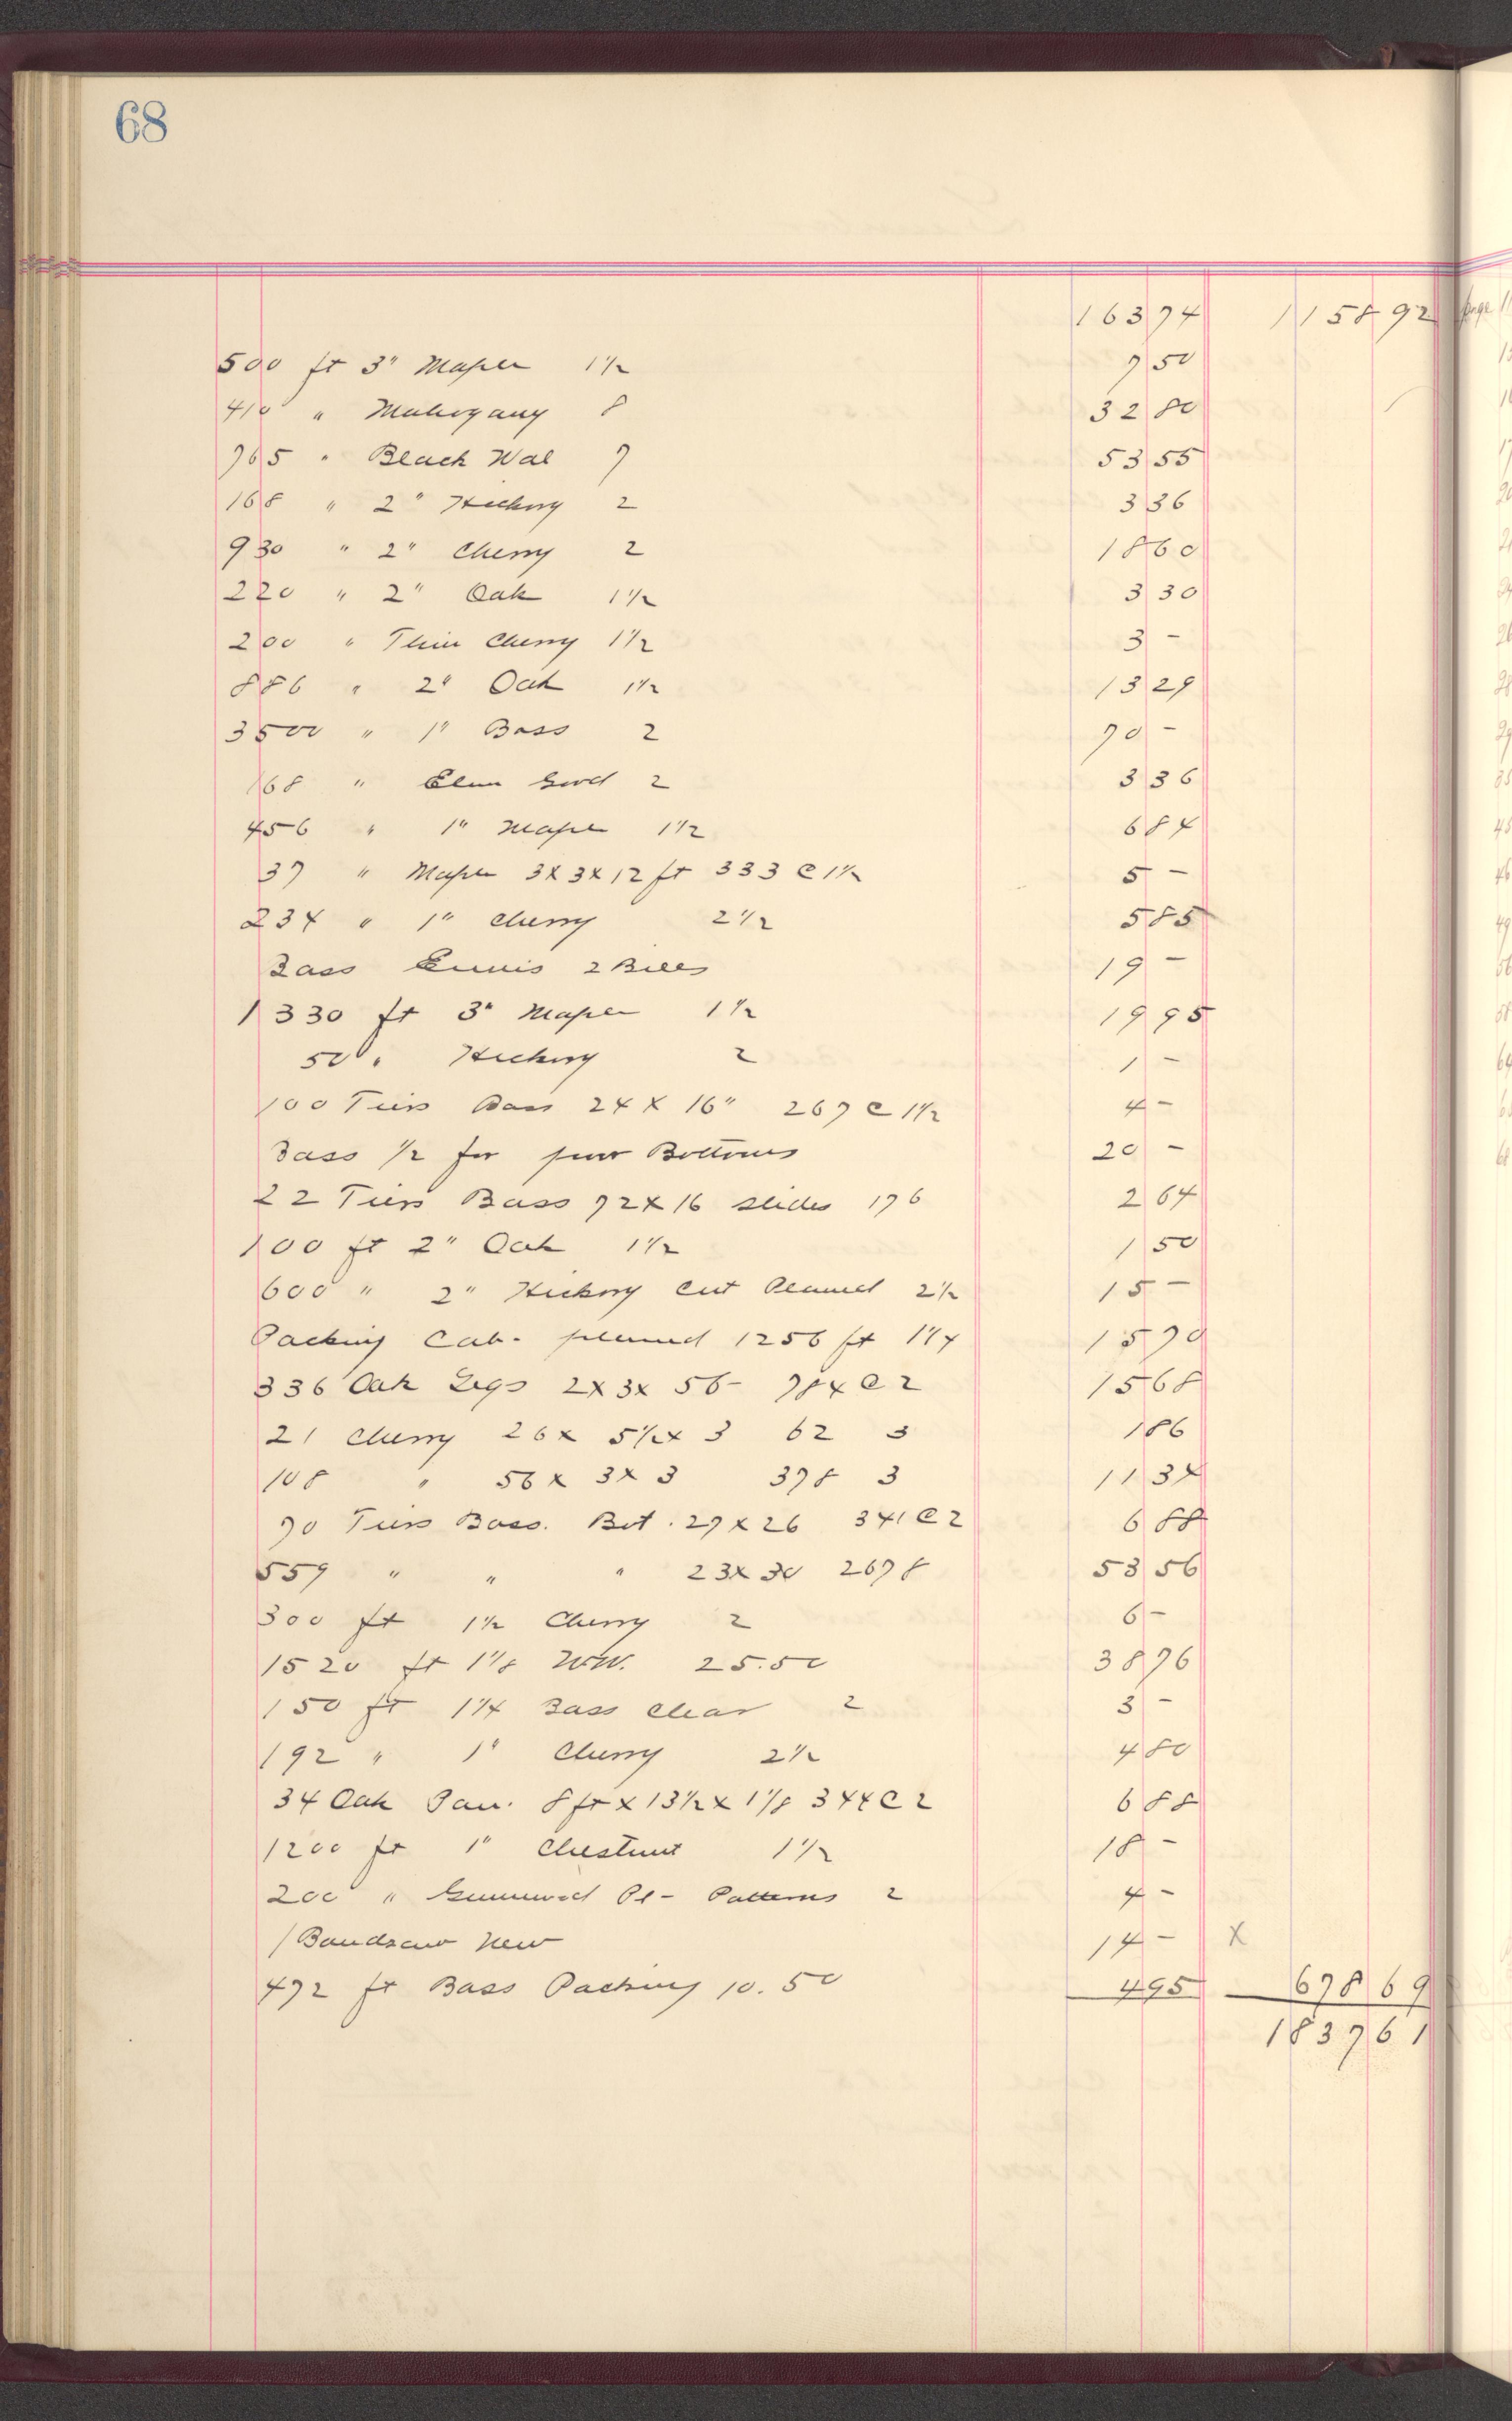 68
163 74 1158 92
500 ft 3" Maple 1½ 7 50
410 " Mahogany 8 32 80
765 " Black Wal 7 53 55
168 " 2" Hickory 2 3 36
930 " 2" Cherry 2 18 60
220 " 2" Oak 1½ 3 30
200 " Thin Cherry 1½ 3 -
886 " 2" Oak 1½ 13 29
3500 " 1" Bass 2 70 -
168 " Elm Good 2 3 36
456 " 1" Maple 1½ 6 84
37 " Maple 3x3x12 ft 333 @ 1½ 5 -
234 " 1" Cherry 2½ 5 85
Bass Ennis 2 Bills 19 -
1330 ft 3" Maple 1½ 19 95
50 " Hickory 2 1 -
100 Tiers Bass 24 x 16" 267 @ 1½ 4 -
Bass ½ for Bottoms 20 -
22 Tiers Bass 72x16 slides 176 2 64
100 ft 2" Oak 1½ 1 50
600 " 2" Hickory Cut Planed 2½ 15 -
Packing Cab. planed 1256 ft 1¼ 15 70
336 Oak Legs 2x3x 56 - 784 @ 2 15 68
21 Cherry 26x 5½x 3 62 3 1 86
108 " 56 x 3x 3 378 3 11 34
70 Tiers Bass. Bot. 27x26 341 @ 2 6 88
559 " " " 23x30 2678 53 56
300 ft 1½ Cherry 2 6 -
1520 ft 1⅛ WW. 25.50 38 76
150 ft 1¼ Bass Clear 2 3 -
192 " 1" Cherry 2½ 4 80
34 Oak Pan. 8 ft x 13½ x 1⅛ 344 @ 2 6 88
1200 ft 1" Chestnut 1½ 18 -
200 " Gumwood Pl- Patterns 2 4 -
1 Bandsaw New 14 - X
472 ft Bass Packing 10.50 4 95 678 69
1837 61